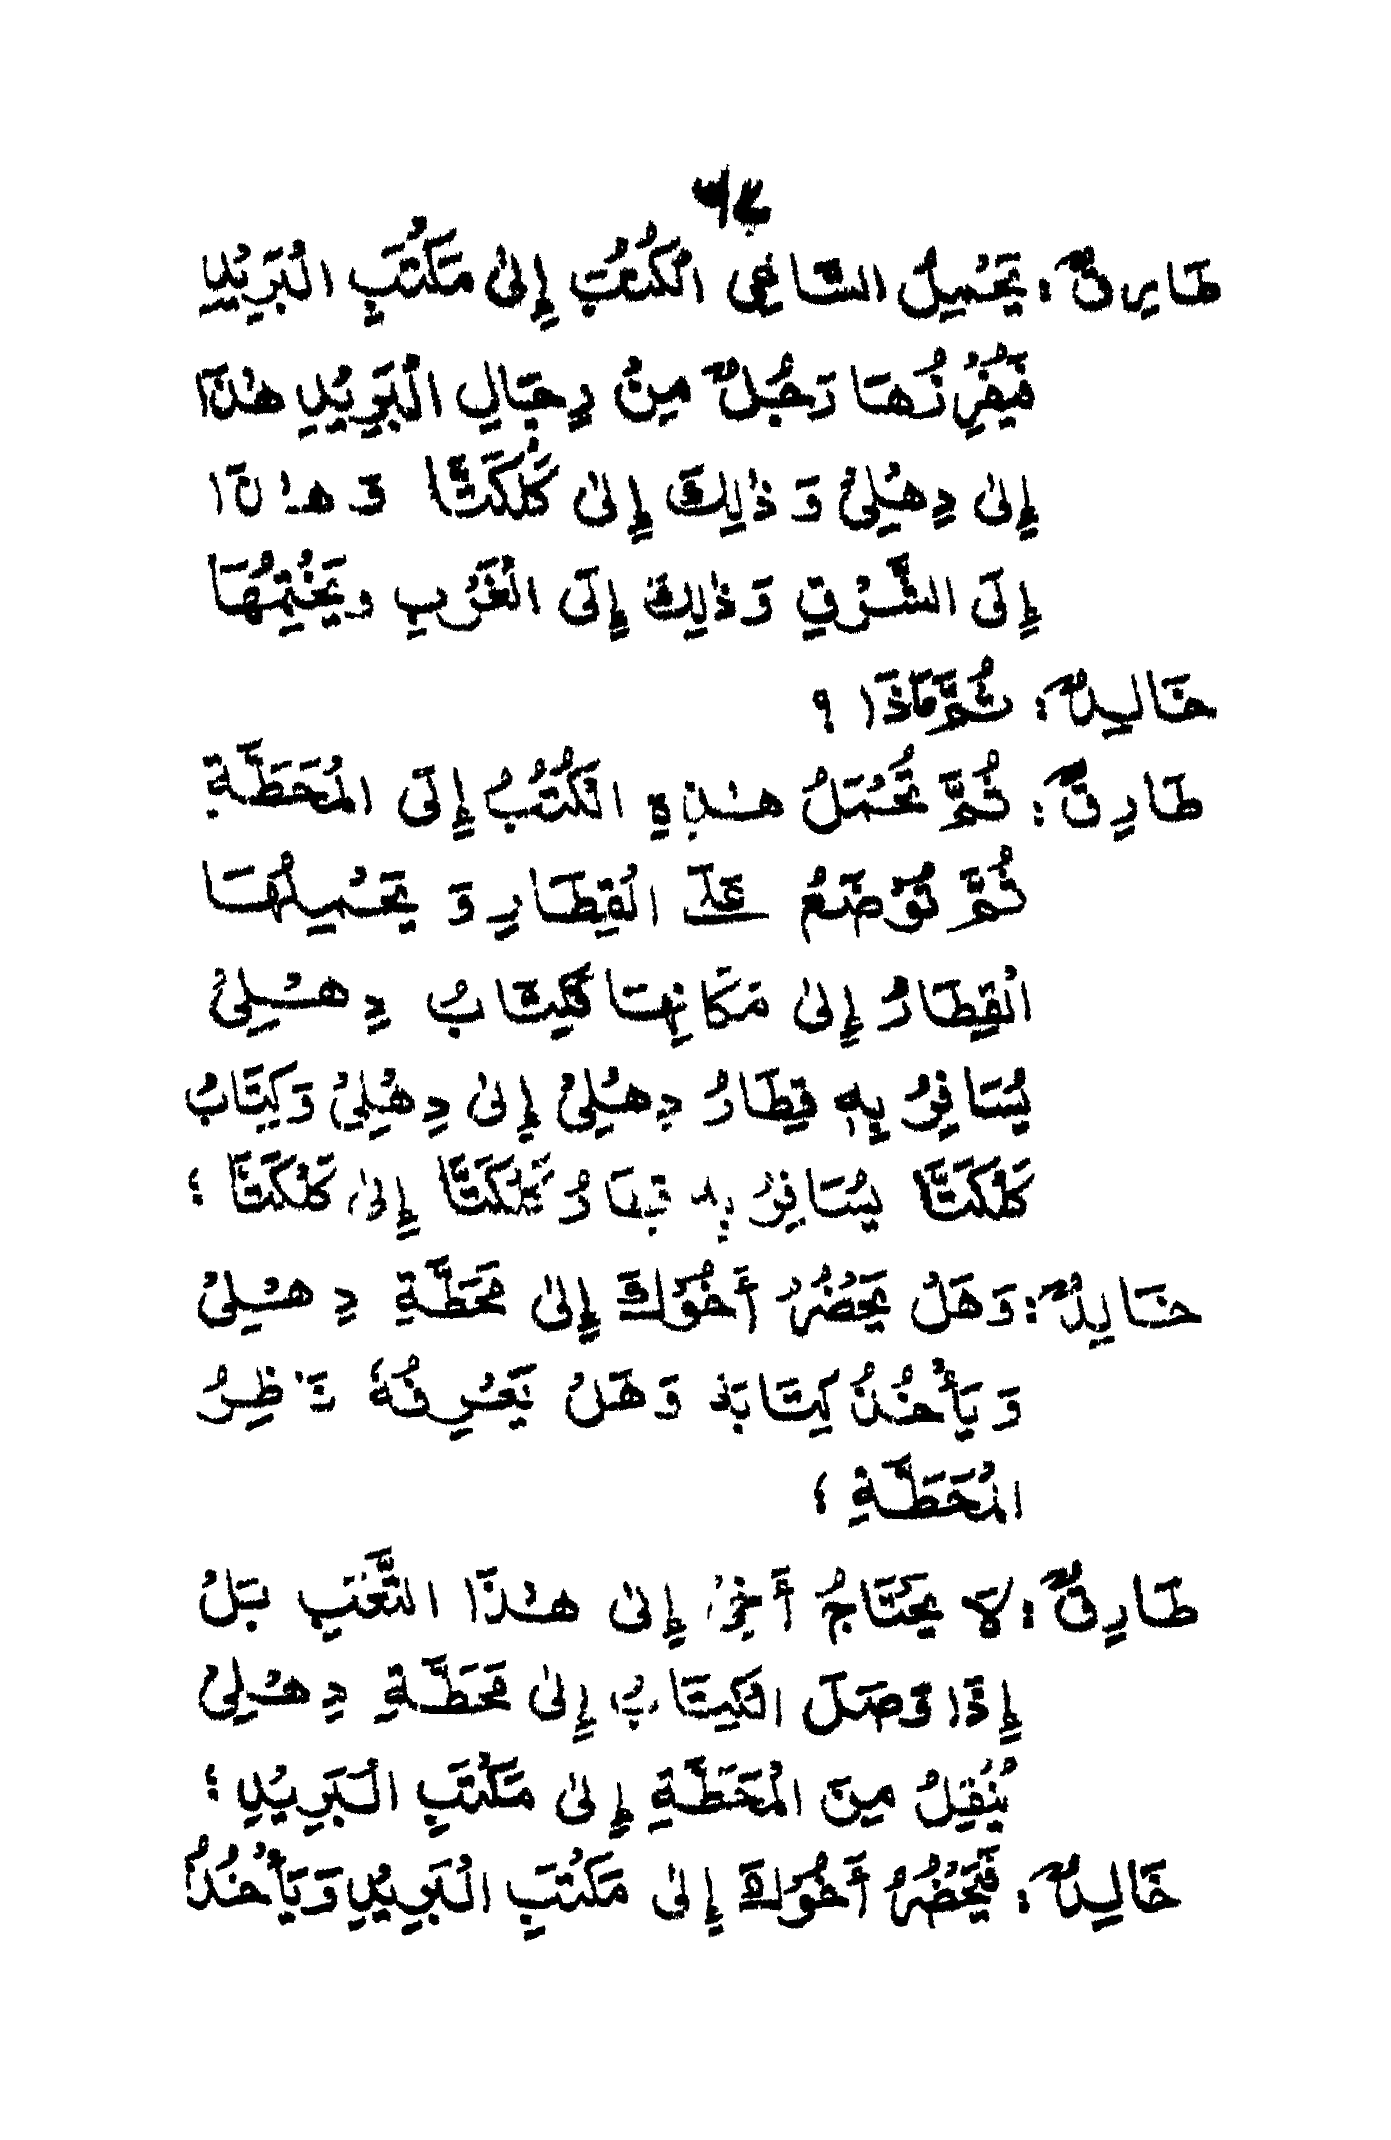 طَارِقٌ : يَحْمِلُ السَّاعِي الْكُتُبَ إِلىٰ مَكْتَبِ الْبَرِيْدِ
فَيَفْرِزُهَا رَجُلٌ مِنْ رِجَالِ الْبَرِيْدِ هٰذَا
إِلىٰ دِهْلِيْ وَ ذٰلِكَ إِلىٰ كَلْكَتَّا وَ هٰذَا
إِلَى الشَّرْقِ وَ ذٰلِكَ إِلَى الْغَرْبِ وَيَخْتِمُهَا
خَالِدٌ : ثُمَّ مَاذَا ؟
طَارِقٌ : ثُمَّ تُحْمَلُ هٰذِهِ الْكُتُبُ إِلَى الْمَحَطَّةِ
ثُمَّ تُوْضَعُ عَلَى الْقِطَارِ وَ يَحْمِلُهَا
الْقِطَارُ إِلىٰ مَكَانِهَا فَكِتَابُ دِهْلِيْ
يُسَافِرُ بِهٖ قِطَارُ دِهْلِيْ إِلىٰ دِهْلِيْ وَكِتَابُ
كَلْكَتَّا يُسَافِرُ بِهٖ قِطَارُ كَلْكَتَّا إِلىٰ كَلْكَتَّا ؛
خَالِدٌ : وَهَلْ يَحْضُرُ أَخُوْكَ إِلىٰ مَحَطَّةِ دِهْلِيْ
وَ يَأْخُذُ كِتَابَهٗ وَ هَلْ يَعْرِفُهٗ نَاظِرُ
الْمَحَطَّةِ ؛
طَارِقٌ : لَا يَحْتَاجُ أَخِيْ إِلىٰ هٰذَا التَّعَبِ بَلْ
إِذَا وَصَلَ الْكِتَابُ إِلىٰ مَحَطَّةِ دِهْلِيْ
يُنْقَلُ مِنَ الْمَحَطَّةِ إِلىٰ مَكْتَبِ الْبَرِيْدِ ؛
خَالِدٌ : فَيَحْضُرُ أَخُوْكَ إِلىٰ مَكْتَبِ الْبَرِيْدِ وَيَأْخُذُ